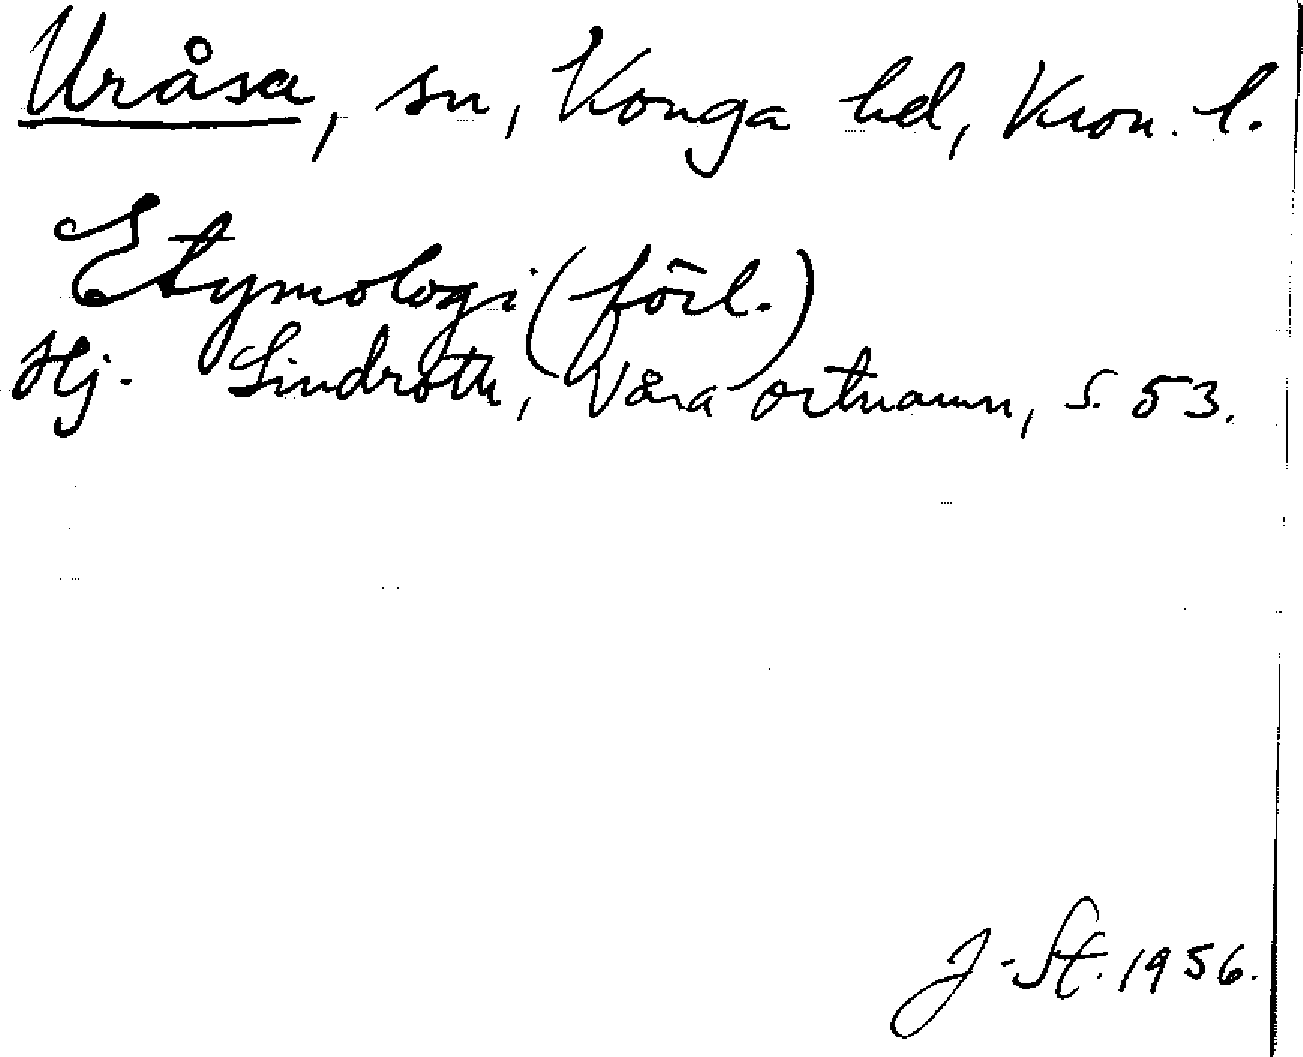 Uråsa, sn, Konga hd, Kron. l.
Etymologi (förl.)
Hj. Lindroth, Våra ortnamn, s. 53.
J-St. 1956.